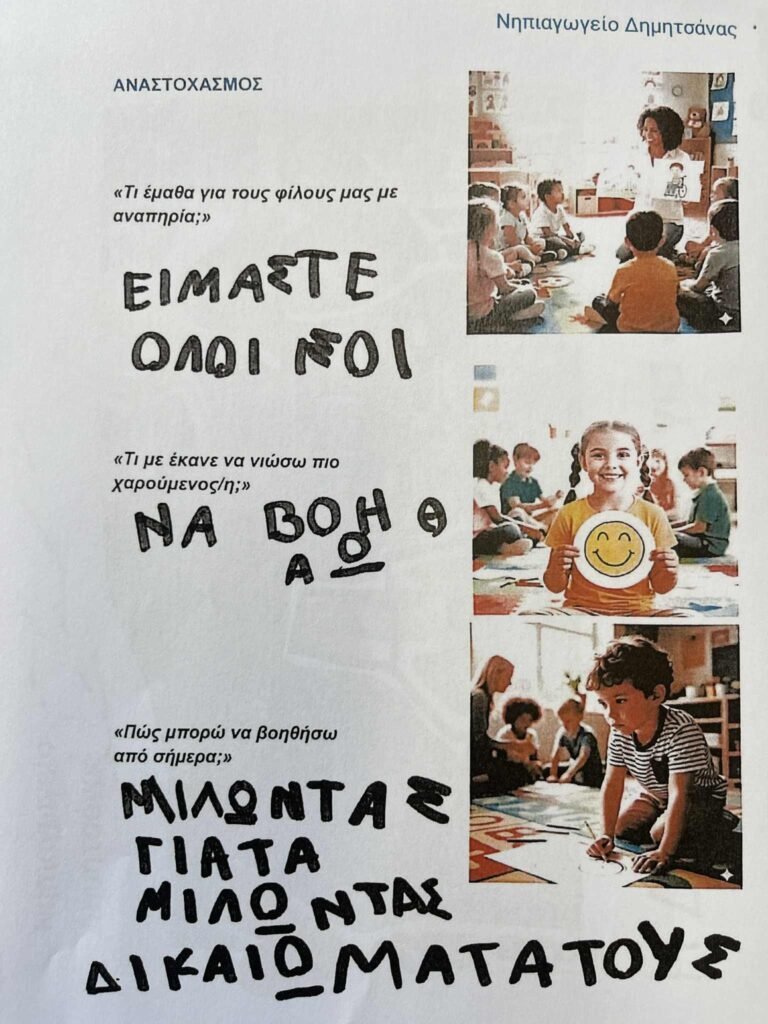 Νηπιαγωγείο Δημητσάνας
ΑΝΑΣΤΟΧΑΣΜΟΣ
«Τι έμαθα για τους φίλους μας με
αναπηρία;»
ΕΙΜΑΣΤΕ
ΟΛΟΙ ΜΟΙ
«Τι με έκανε να νιώσω πιο
χαρούμενος/η;»
ΝΑ ΒΟΗΘ
ΑΩ
«Πώς μπορώ να βοηθήσω
από σήμερα;»
ΜΙΛΩΝΤΑΣ
ΓΙΑΤΑ
ΜΙΛΩΝΤΑΣ
ΔΙΚΑΙΩΜΑΤΑΤΟΥΣ